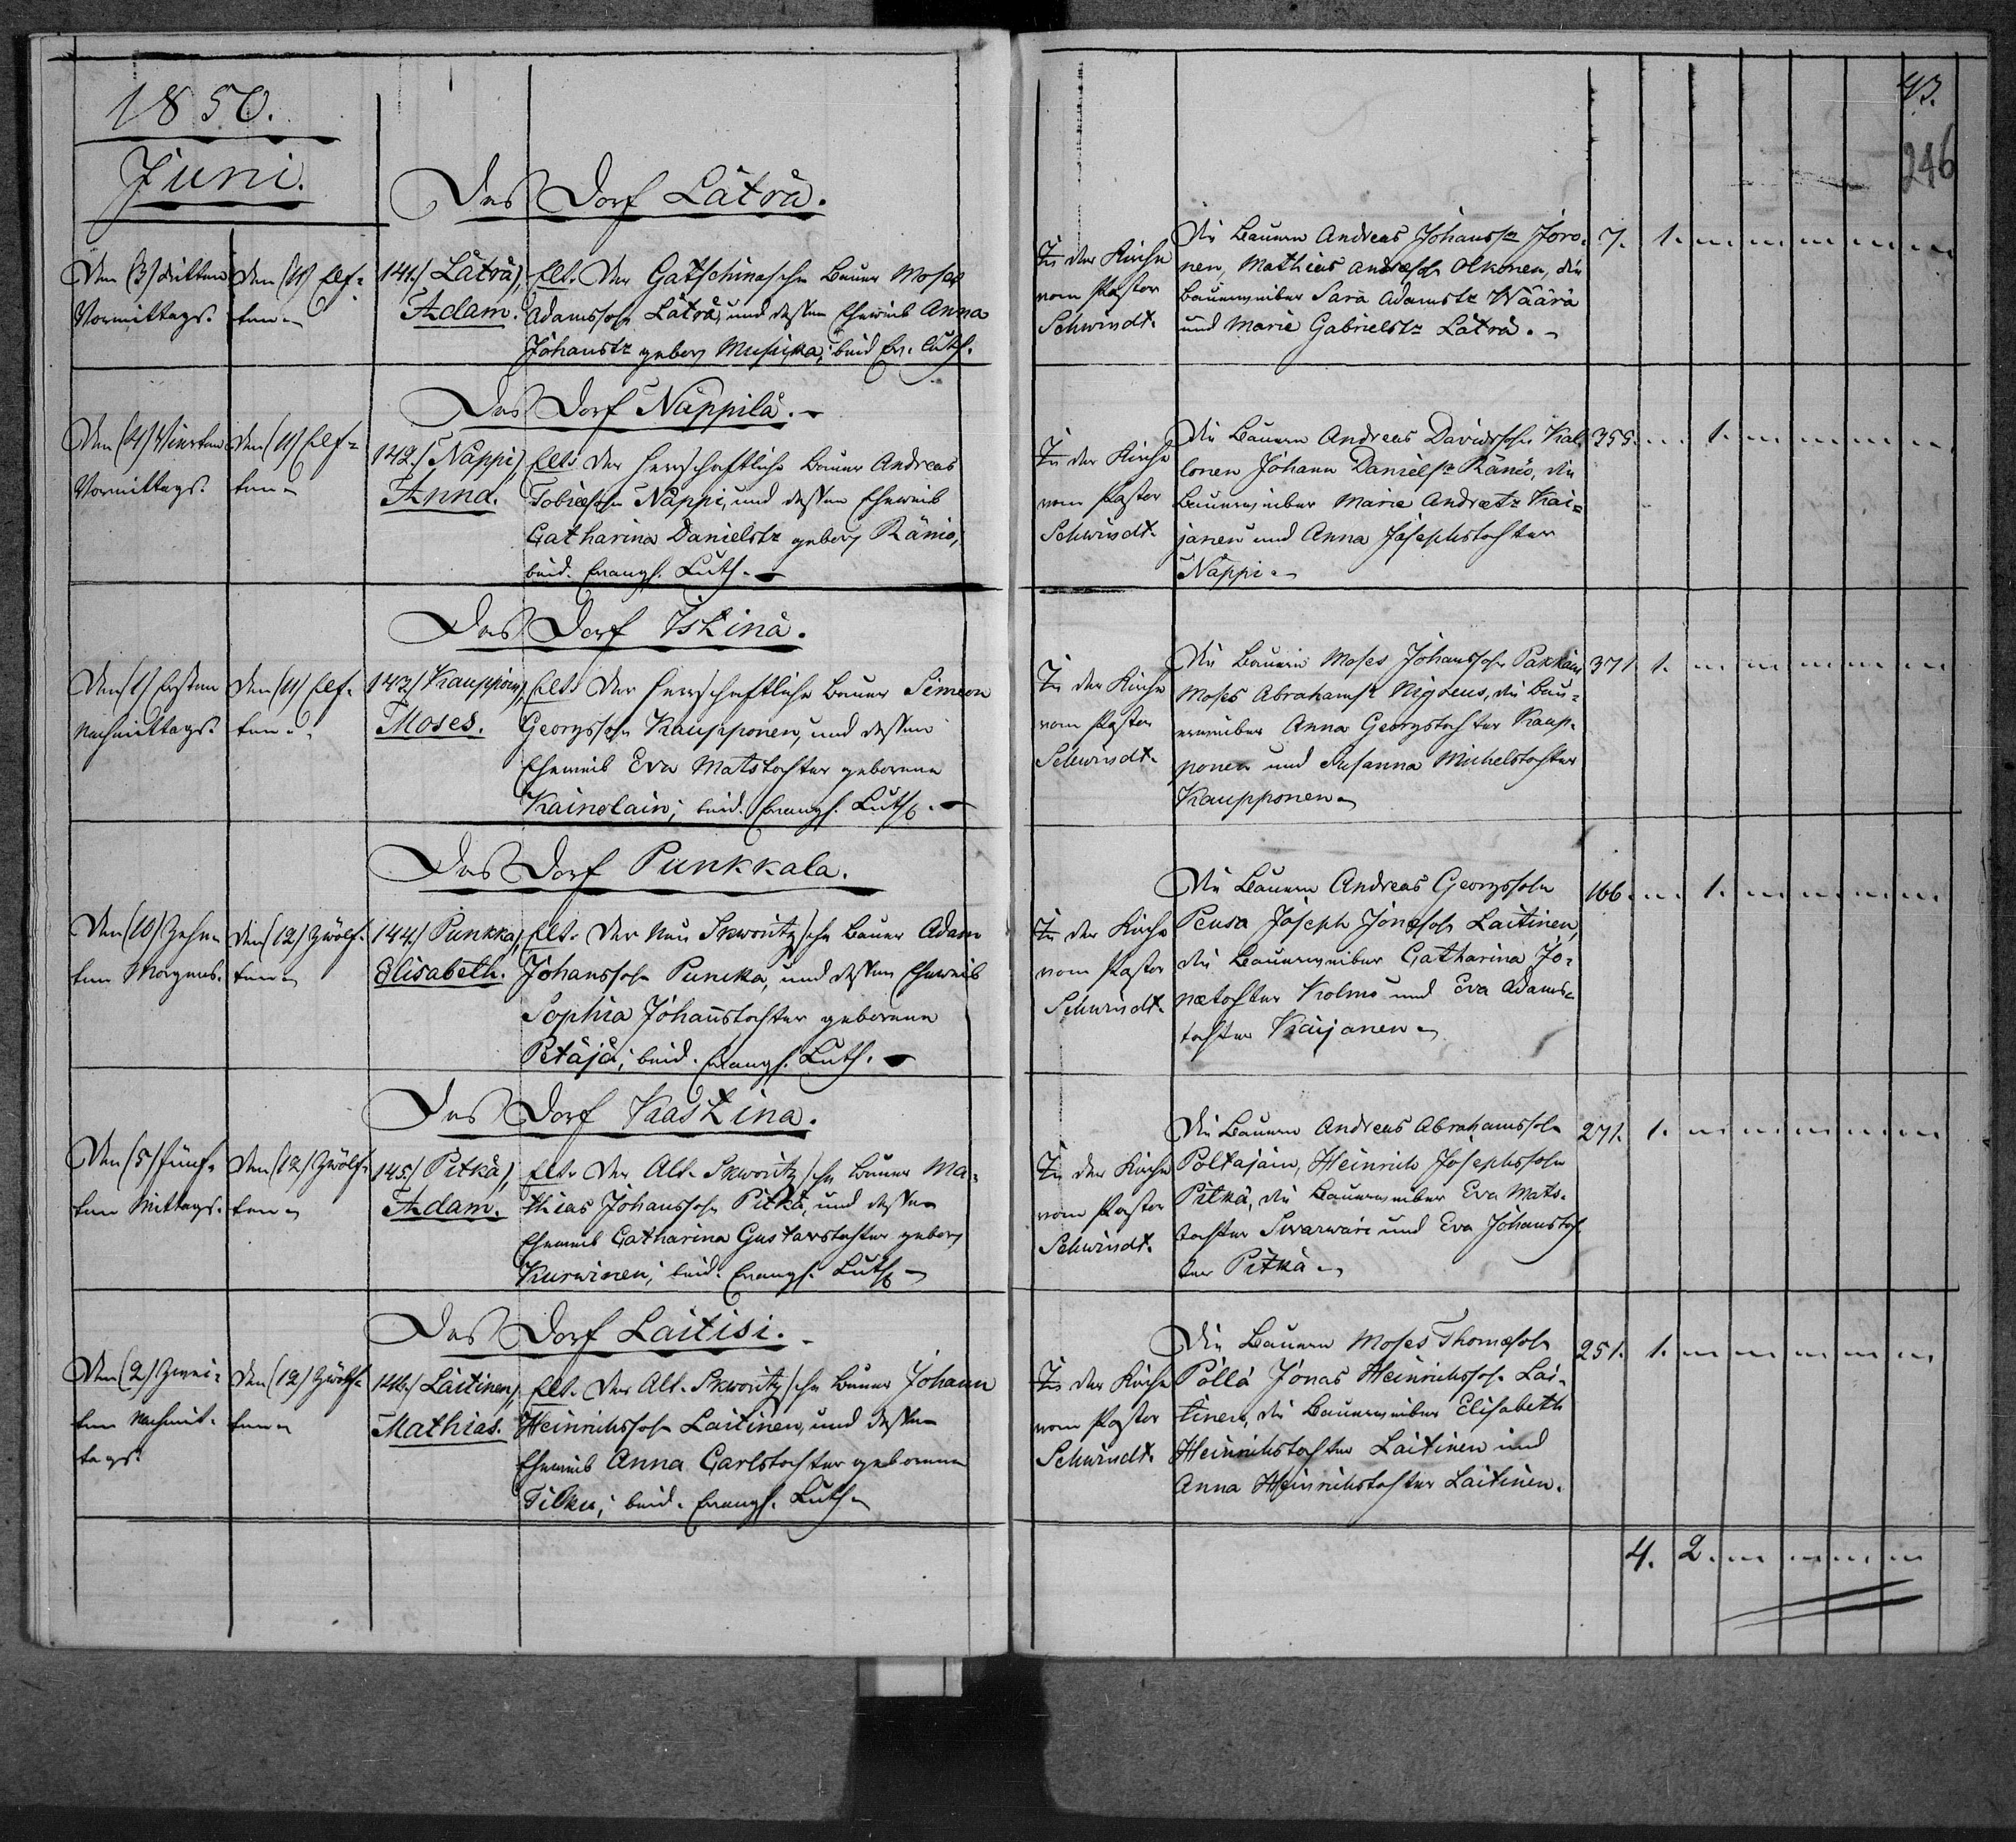 1850.
Juni.
43.
246
Das Dorf Lätvä.
Den (3) dritten
Vormittags.
Den (11) Elf-
ten
141.) Lätvä,
Adam.
Elt. Der Gatschinasche Bauer Moses
Adamssohn Lätvä, und dessen Eheweib Anna
Johanstr geborn beid. Ev. Luth.
In der Kirche
vom Pastor
Schwindt.
Die Bauern Andreas Johanss. Joro-
nen, Mathias Andræsohn Olkonen, die
Bauernweiber Sara Adamstr Wäärä
und Marie Gabrielstr Lätvä.
7. 1.
Das Dorf Näppilä.
Den (4) Vierten
Vormittags.
Den (11) Elf-
ten
142.) Näppi,
Anna.
Elt: Der herrschaftliche Bauer Andreas
Tobiæsohn Näppi, und dessen Eheweib
Catharina Danielstr geborn Ränio,
beid. Evangl. Luth.
In der Kirche
vom Pastor
Schwindt.
Die Bauern Andreas Davidssohn Kal-
lonen Johann Daniels. Ränio, die
Bauernweiber Marie Andrætr Kai-
janen und Anna Josephstochter
Näppi.
355. 1.
Das Dorf Iskinä.
Den (1) Ersten
Nachmittags.
Den (11) Elf-
ten
143.) Kaupponen,
Moses.
Elt: Der herrschaftliche Bauer Simeon
Georgssohn Kaupponen, und dessen
Eheweib Eva Matstochter geborene
Kainolain; beid. Evangl. Luth.
In der Kirche
vom Pastor
Schwindt.
Die Bauern Moses Johanssohn
Moses Abrahams. die Bau-
ernweiber Anna Georgstochter Kaup-
ponen und Susanna Michelstochter
Kaupponen
371. 1.
Das Dorf Punkkala.
Den (10) Zehn-
ten Morgens.
Den (12) Zwölf-
ten
144.) Punkka,
Elisabeth.
Elt. Der Neu Skworitz/sche Bauer Adam
Johanssohn Punkka, und dessen Eheweib
Sophia Johanstochter geborene
Petäjä; beid. Evangl. Luth.
In der Kirche
vom Pastor
Schwindt.
Die Bauern Andreas Georgssohn
Peusa Joseph Jonæsohn Laitinen,
die Bauernweiber Catharina Jo-
nætochter Kolmo und Eva Adams-
tochter Kaijanen
166. 1.
Das Dorf Kaskina.
Den (5) fünf-
ten Mittags.
Den (12) Zwölf-
ten
145.) Pitkä,
Adam.
Elt. Der Alt. Skworitz/sche Bauer Ma-
thias Johanssohn Pitkä, und dessen
Eheweib Catharina Gustavstochter geborn
Kurwinen; beid. Evangl. Luth.
In der Kirche
vom Pastor
Schwindt.
Die Bauern Andreas Abrahamssohn
Poltajain, Heinrich Josephssohn
Pitkä, die Bauernweiber Eva Mats-
tochter Swarwari und Eva Johanstoch-
ter Pitkä
271. 1.
Das Dorf Laitisi.
Den (2) Zwei-
ten Nachmit-
tags.
Den (12) Zwölf-
ten
146.) Laitinen,
Mathias.
Elt. Der Alt. Skworitz/sche Bauer Johann
Heinrichssohn Laitinen, und dessen
Eheweib Anna Carlstochter geborene
Tilku; beid. Evangl. Luth.
In der Kirche
vom Pastor
Schwindt.
Die Bauern Moses Thomæsohn
Pöllä Jonas Heinrichssoh. Lai-
tinen, die Bauernweiber Elisabeth
Heinrichstochter Laitinen und
Anna Heinrichstochter Laitinen.
251. 1.
4. 2.